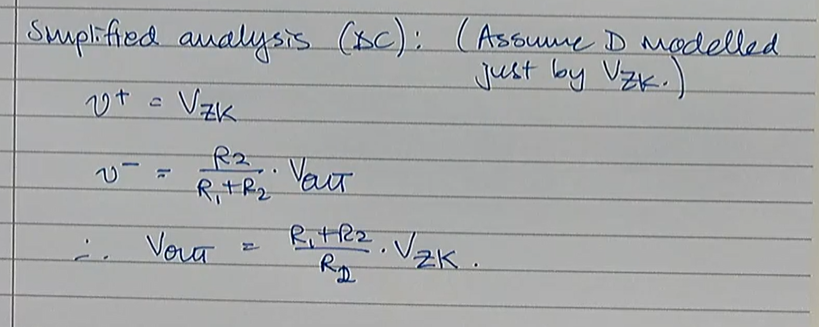 Simplified analysis (DC): (Assume D modelled
just by VZK.)
v+ = VZK
v- = R2/(R1+R2) · Vout
∴ Vout = (R1+R2)/RD · VZK.